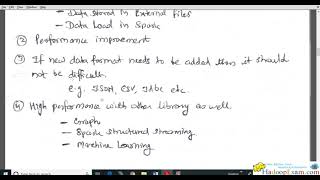 - Data stored in External Files
- Data Load in Spark
② Performance improvement
③ If new data format needs to be added than it should
not be difficult.
e.g. JSON, CSV, Jdbc etc.
④ High performance with other library as well.
- Graph
- Spark structured streaming
- Machine Learning
HadoopExam.com